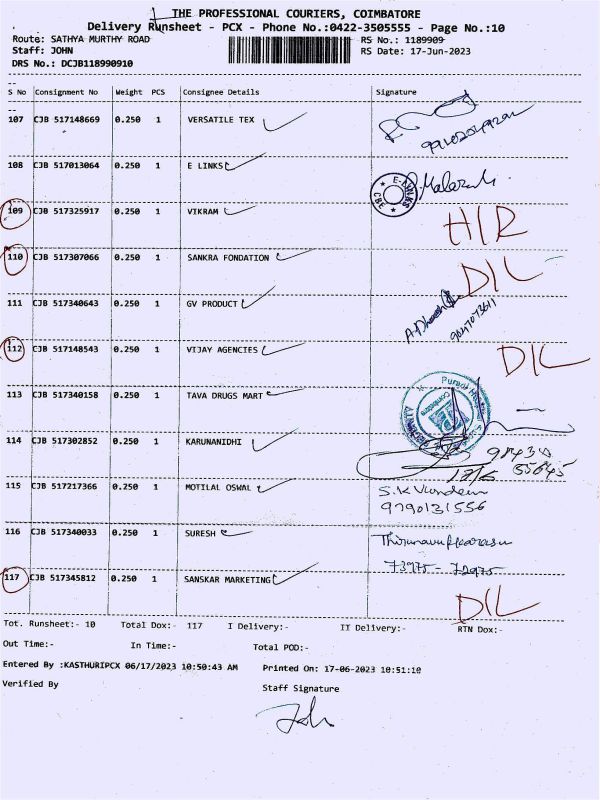 THE PROFESSIONAL COURIERS, COIMBATORE
Delivery Runsheet - PCX - Phone No.:0422-3505555 - Page No.:10
Route: SATHYA MURTHY ROAD RS No.: 1189909
Staff: JOHN RS Date: 17-Jun-2023
DRS No.: DCJB118990910
S No Consignment No Weight PCS Consignee Details Signature
107 CJB 517148669 0.250 1 VERSATILE TEX
108 CJB 517013064 0.250 1 E LINKS E-LINKS CBE
109 CJB 517325917 0.250 1 VIKRAM
110 CJB 517307066 0.250 1 SANKRA FONDATION D/L
111 CJB 517340643 0.250 1 GV PRODUCT
112 CJB 517148543 0.250 1 VIJAY AGENCIES D/L
113 CJB 517340158 0.250 1 TAVA DRUGS MART Coimbatore
114 CJB 517302852 0.250 1 KARUNANIDHI
115 CJB 517217366 0.250 1 MOTILAL OSWAL
9790131556
116 CJB 517340033 0.250 1 SURESH
73975 - 72975
117 CJB 517345812 0.250 1 SANSKAR MARKETING D/L
Tot. Runsheet:- 10 Total Dox:- 117 I Delivery:- II Delivery:- RTN Dox:-
Out Time:- In Time:- Total POD:-
Entered By :KASTHURIPCX 06/17/2023 10:50:43 AM Printed On: 17-06-2023 10:51:10
Verified By Staff Signature
John